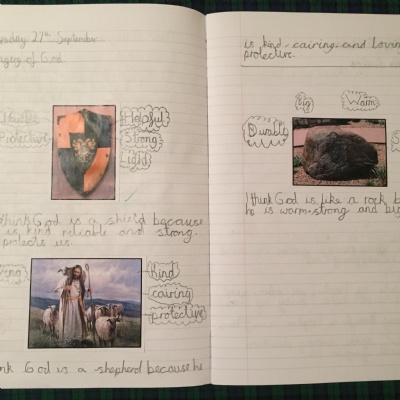 27th September
of God
Helpful
Protective
Strong
Light
think God is a shield because
is kind reliable and strong.
protects us.
Kind
cairing
protective
God is a shepherd because he
is kind - cairing - and loving
protective.
Big
Warm
Durable
I think God is like a rock
he is warm - strong and